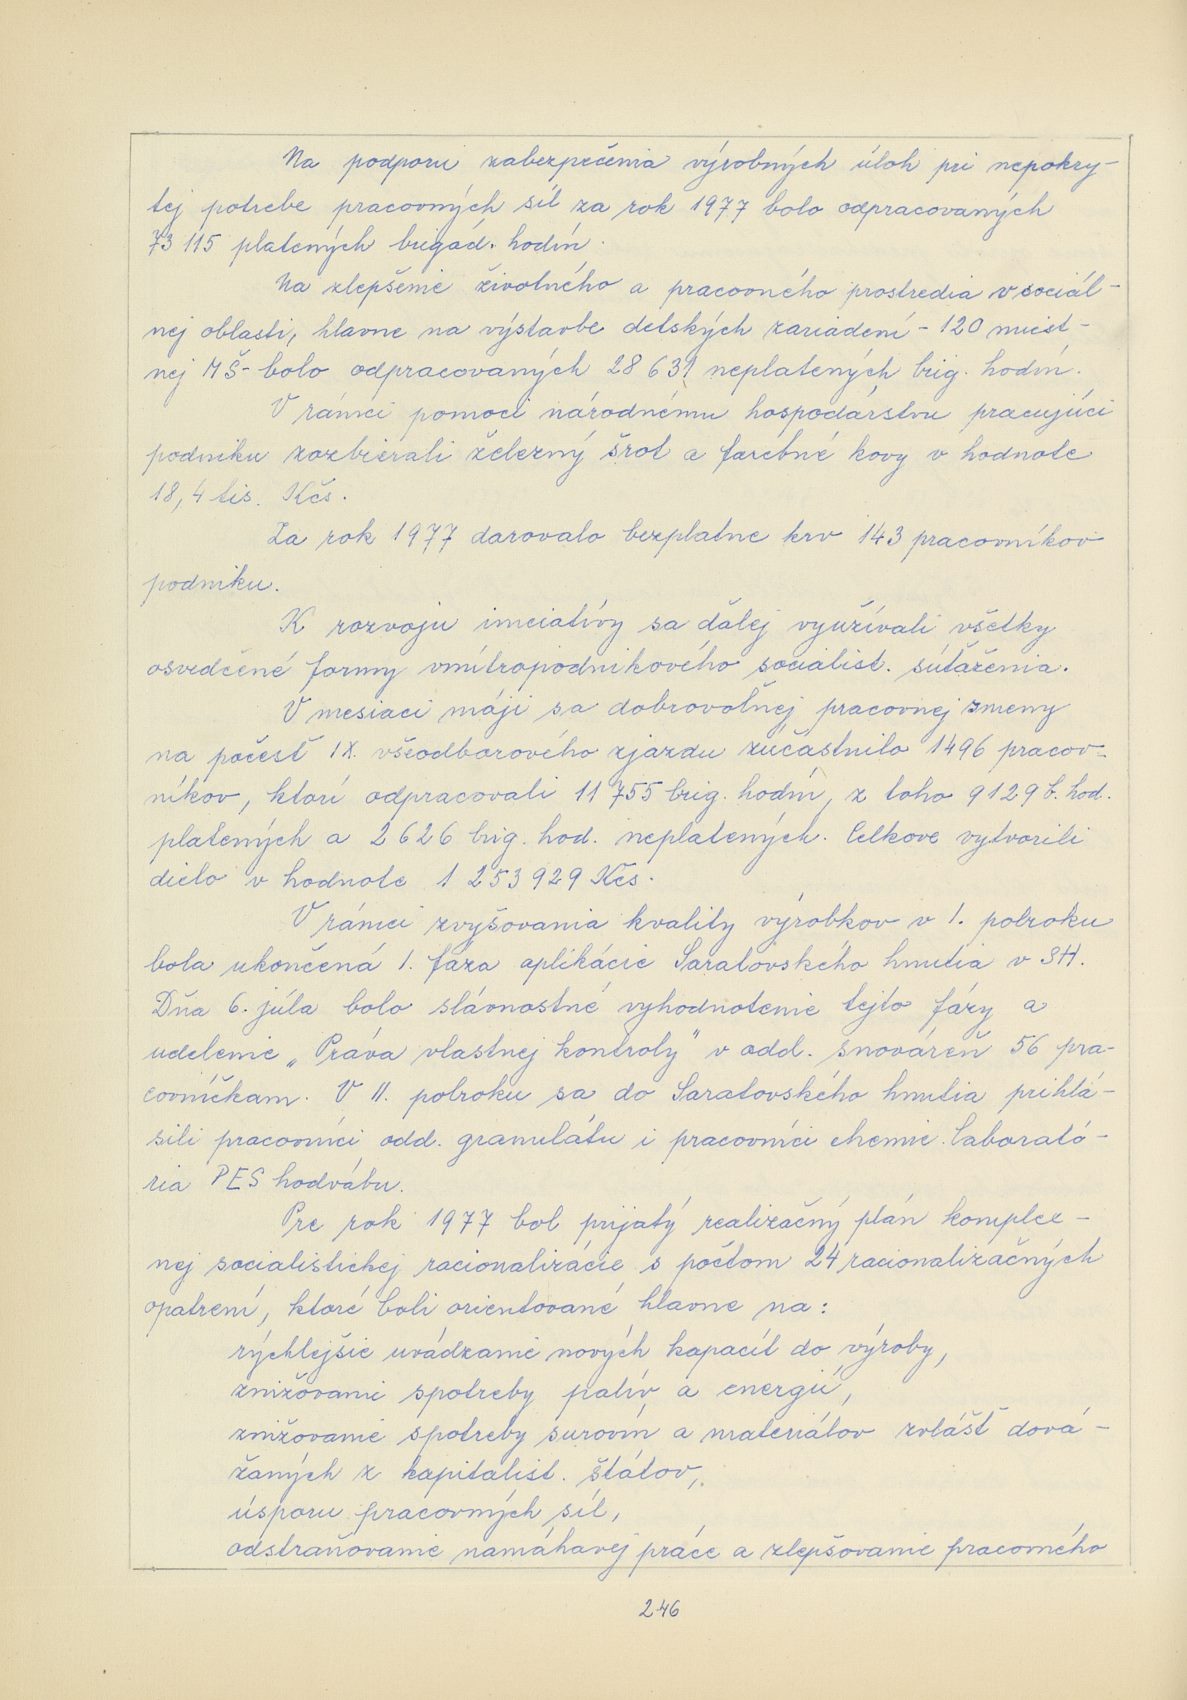 Na podporu zabezpečenia výrobných úloh pri nepokry-
tej potrebe pracovných síl za rok 1977 bolo odpracovaných
73 115 platených brigád. hodín.
Na zlepšenie životného a pracovného prostredia v sociál-
nej oblasti, hlavne na výstavbe detských zariadení - 120 miest-
nej MŠ - bolo odpracovaných 28 631 neplatených brig. hodín.
V rámci pomoci národnému hospodárstvu pracujúci
podniku zozbierali železný šrot a farebné kovy v hodnote
18,4 tis. Kčs.
Za rok 1977 darovalo bezplatne krv 143 pracovníkov
podniku.
K rozvoju iniciatívy sa ďalej využívali všetky
osvedčené formy vnútropodnikového socialist. súťaženia.
V mesiaci máji sa dobrovoľnej pracovnej zmeny
na počesť IX. všeodborového zjazdu zúčastnilo 1496 pracov-
níkov, ktorí odpracovali 11 755 brig. hodín, z toho 9129 b. hod.
platených a 2626 brig. hod. neplatených. Celkove vytvorili
dielo v hodnote 1 253 929 Kčs.
V rámci zvyšovania kvality výrobkov v I. polroku
bola ukončená I. fáza aplikácie Saratovského hnutia v SH.
Dňa 6. júla bolo slávnostné vyhodnotenie tejto fázy a
udelenie „Práva vlastnej kontroly" v odd. snováreň 56 pra-
covníčkam. V II. polroku sa do Saratovského hnutia prihlá-
sili pracovníci odd. granulátu i pracovníci chemic. laborató-
ria PES hodvábu.
Pre rok 1977 bol prijatý realizačný plán komplex-
nej socialistickej racionalizácie s počtom 24 racionalizačných
opatrení, ktoré boli orientované hlavne na:
rýchlejšie uvádzanie nových kapacít do výroby,
znižovanie spotreby palív a energií,
znižovanie spotreby surovín a materiálov zvlášť dová-
žaných z kapitalist. štátov,
úsporu pracovných síl,
odstraňovanie namáhavej práce a zlepšovanie pracovného
246